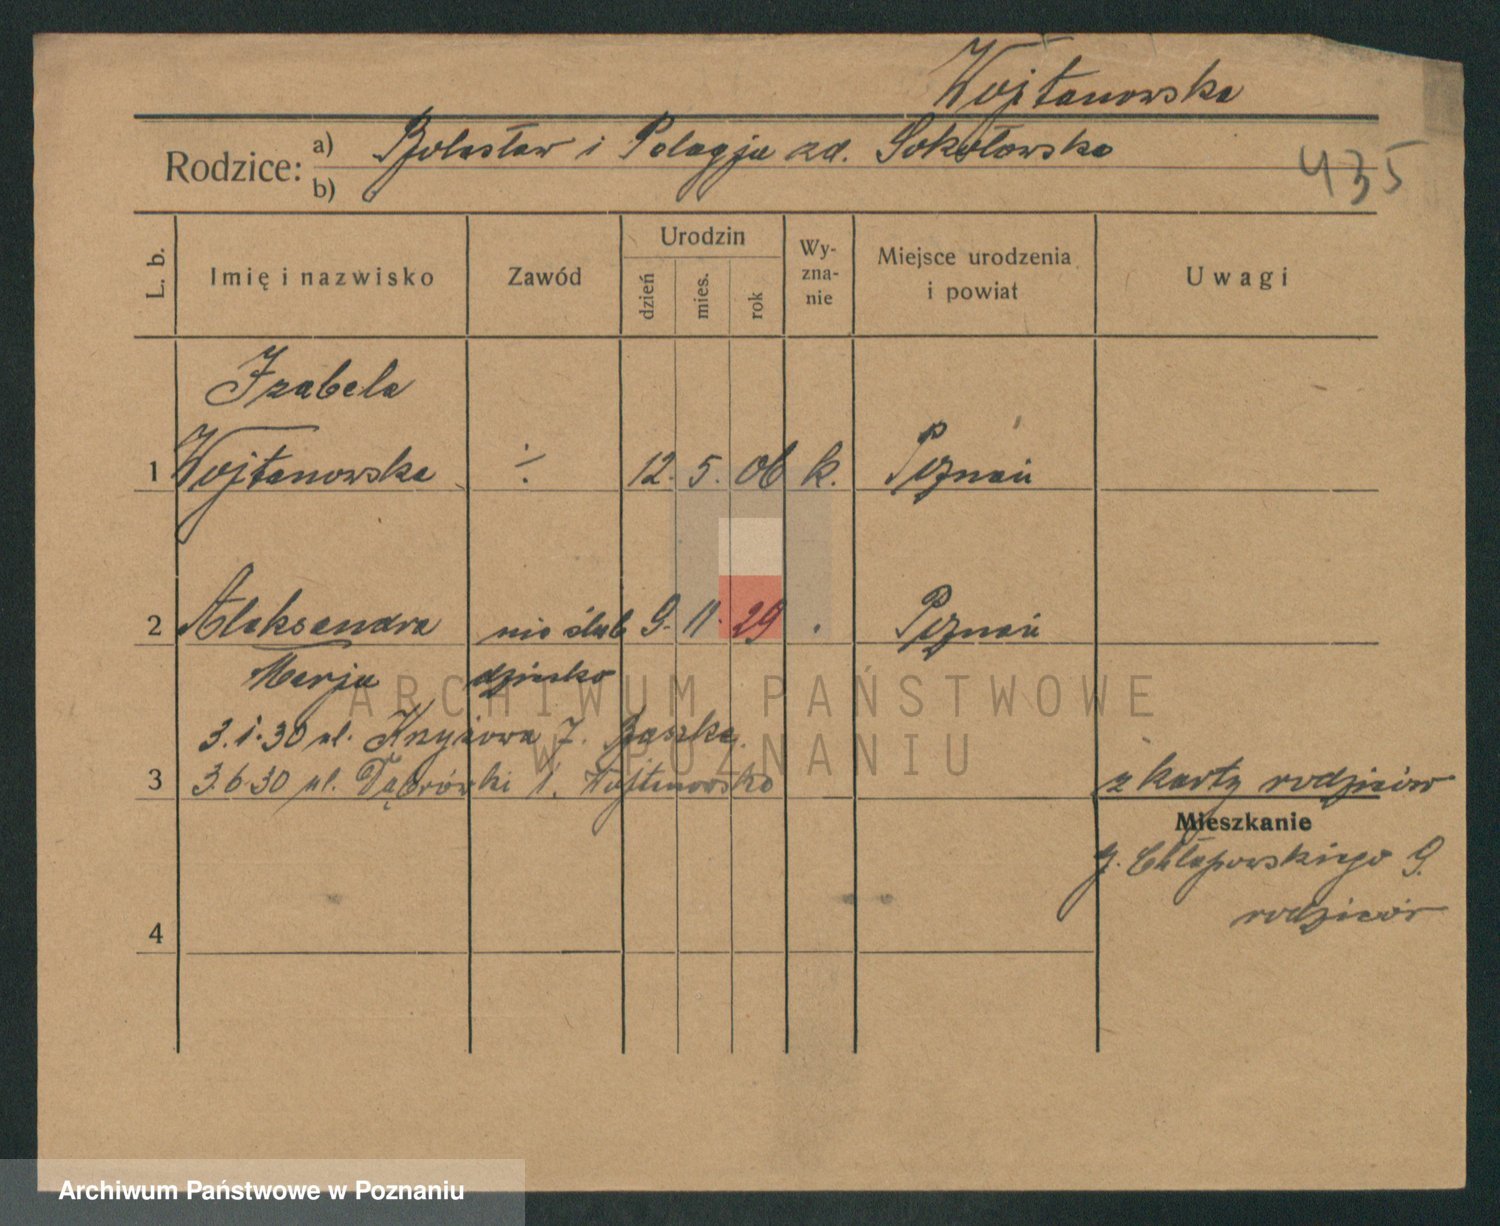 Wojtanowska
Rodzice: a) Bolesław i Pelagja zd. Sokołowska
b)
435
L. b.
Imię i nazwisko
Zawód
Urodzin
dzień
mies.
rok
Wy-
zna-
nie
Miejsce urodzenia
i powiat
Uwagi
Izabela
1 Wojtanowska ·/. 12. 5. 06 k. Poznań
2 Aleksandra nieślub 9. 11. 29 . Poznań
Marja dziecko
3.1.30 ul. Knyżowa 7.
3 3.6.30 ul. Dąbrówki 1. Wojtanowska
z karty rodziców
Mieszkanie
Chłapowskiego 9.
rodziców
4
ARCHIWUM PAŃSTWOWE
W POZNANIU
Archiwum Państwowe w Poznaniu